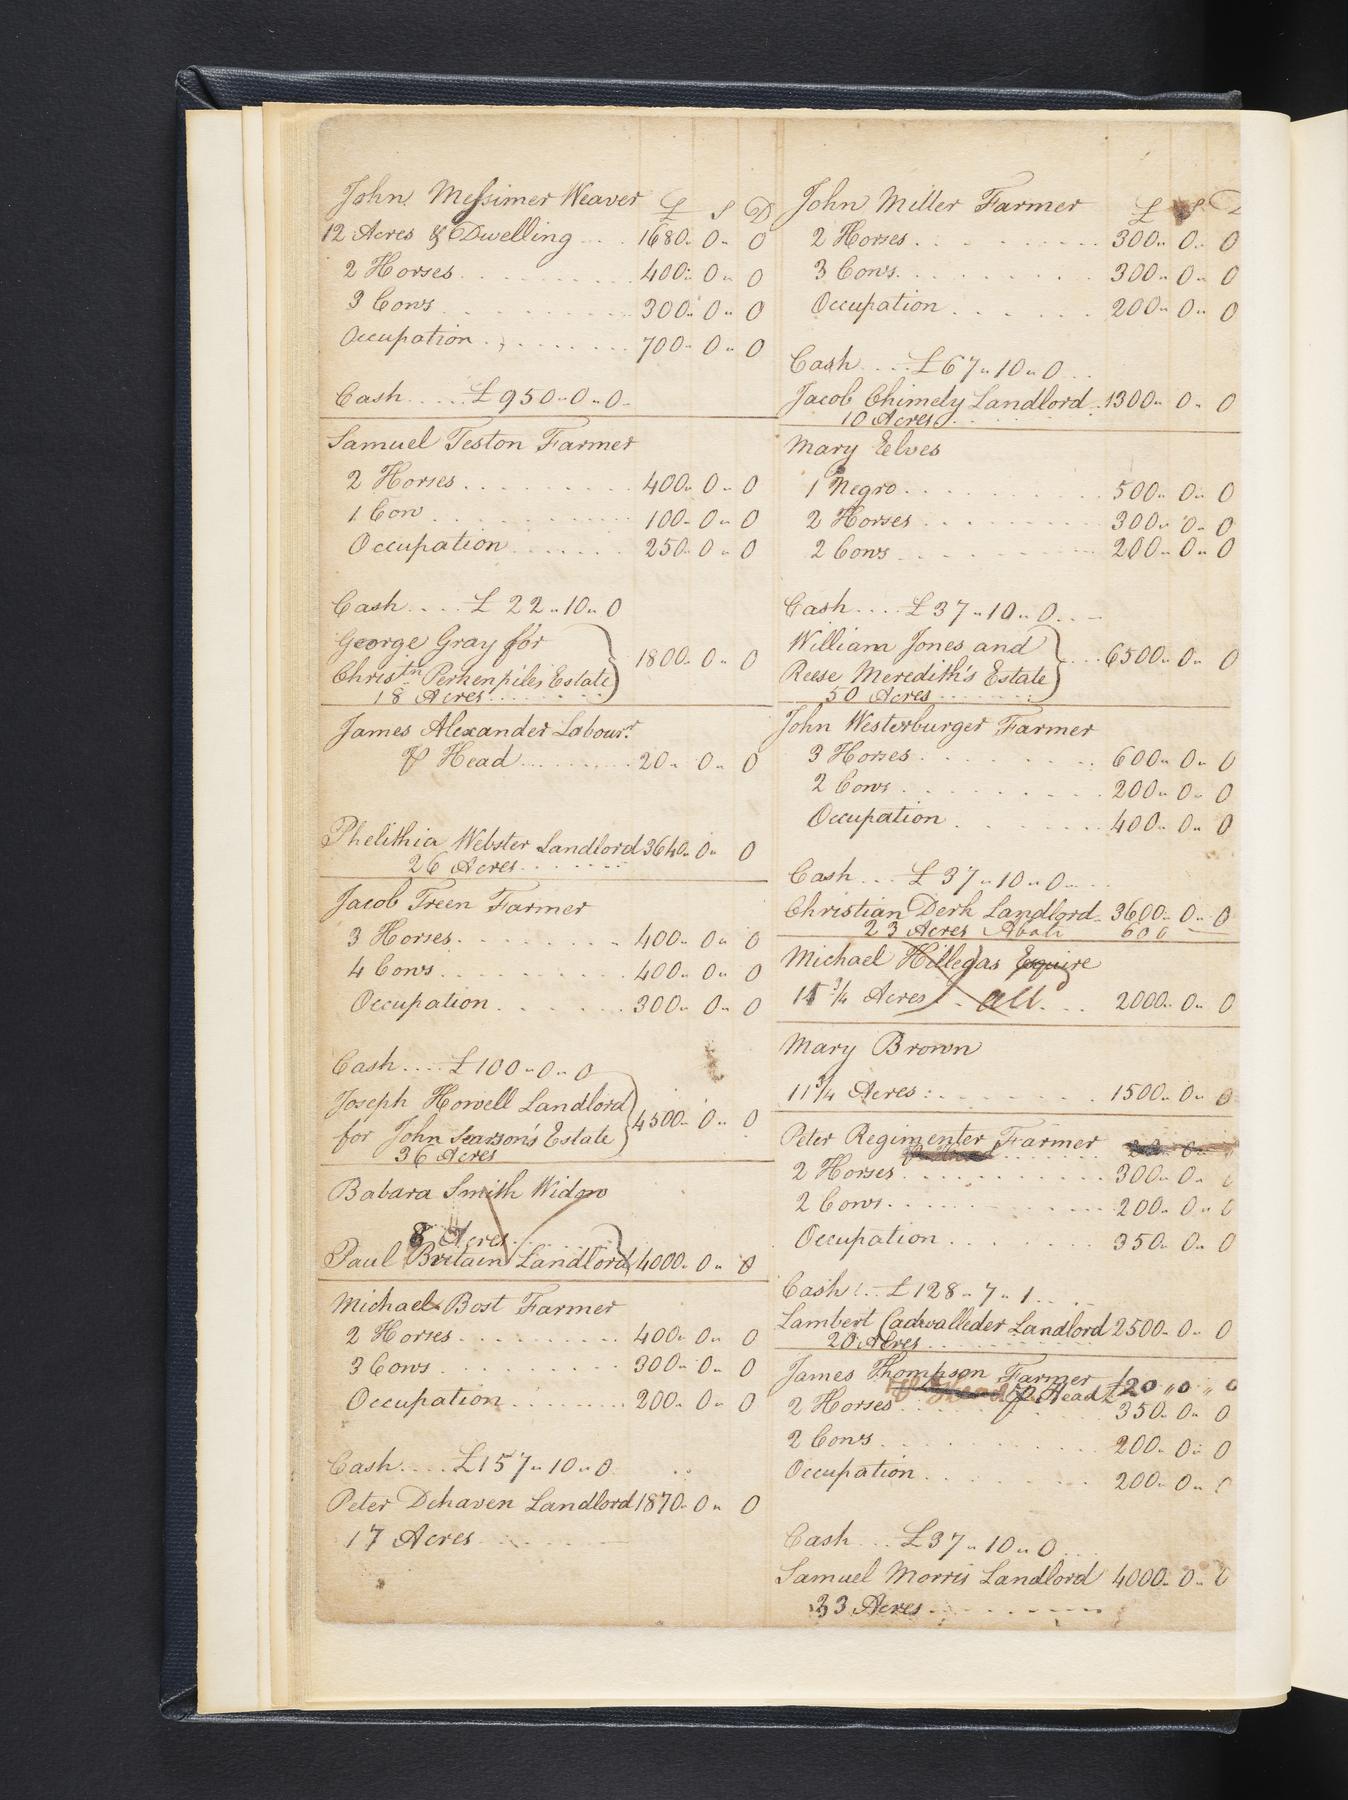 John Messimer Weaver £ S D
12 Acres & Dwelling ... 1680 " 0 " 0
2 Horses ........ 400 " 0 " 0
3 Cows ........ 300 " 0 " 0
Occupation ........ 700 " 0 " 0
Cash .... £950 " 0 " 0
Samuel Teston Farmer
2 Horses ........ 400 " 0 " 0
1 Cow ........ 100 " 0 " 0
Occupation ....... 250 " 0 " 0
Cash .... £ 22 " 10 " 0
George Gray for
Christn Perkenpiles Estate } 1800 " 0 " 0
18 Acres ........
James Alexander Labourr
℔ Head ........ 20 " 0 " 0
Phelithia Webster Landlord 3640 " 0 " 0
26 Acres .......
Jacob Treen Farmer
3 Horses ........ 400 " 0 " 0
4 Cows ........ 400 " 0 " 0
Occupation ....... 300 " 0 " 0
Cash .... £100 " 0 " 0
Joseph Howell Landlord
for John Searson's Estate } 4500 " 0 " 0
36 Acres
Babara Smith Widow
8 Acres ........
Paul Britain Landlord 4000 " 0 " 0
Michael Bost Farmer
2 Horses ........ 400 " 0 " 0
3 Cows ........ 300 " 0 " 0
Occupation ........ 200 " 0 " 0
Cash .... £157 " 10 " 0
Peter Dehaven Landlord 1870 " 0 " 0
17 Acres .......
John Miller Farmer £ S D
2 Horses ........ 300 " 0 " 0
3 Cows ........ 300 " 0 " 0
Occupation ...... 200 " 0 " 0
Cash .... £67 " 10 " 0 ...
Jacob Chimely Landlord .. 1300 " 0 " 0
10 Acres ........
Mary Elves
1 Negro ........ 500 " 0 " 0
2 Horses ........ 300 " 0 " 0
2 Cows ........ 200 " 0 " 0
Cash .... £37 " 10 " 0 ...
William Jones and
Reese Meredith's Estate } ... 6500 " 0 " 0
50 Acres .......
John Westerburger Farmer
3 Horses ........ 600 " 0 " 0
2 Cows ........ 200 " 0 " 0
Occupation ....... 400 " 0 " 0
Cash ... £37 " 10 " 0 ...
Christian Derk Landlord 3600 " 0 " 0
23 Acres Abate 600 —
Michael Hillegas Esquire
15 3/4 Acres .. all ... 2000 " 0 " 0
Mary Brown
11 3/4 Acres : ....... 1500 " 0 " 0
Peter Regimenter Farmer
2 Horses ........ 300 " 0 " 0
2 Cows ........ 200 " 0 " 0
Occupation ....... 350 " 0 " 0
Cash ... £128 " 7 " 1 ....
Lambert Cadwalleder Landlord 2500 " 0 " 0
20 Acres ........
James Thompson Farmer
℔ Head £20 " 0 " 0
2 Horses ...... 350 " 0 " 0
2 Cows ........ 200 " 0 " 0
Occupation ....... 200 " 0 " 0
Cash ... £37 " 10 " 0 ...
Samuel Morris Landlord 4000 " 0 " 0
33 Acres ........